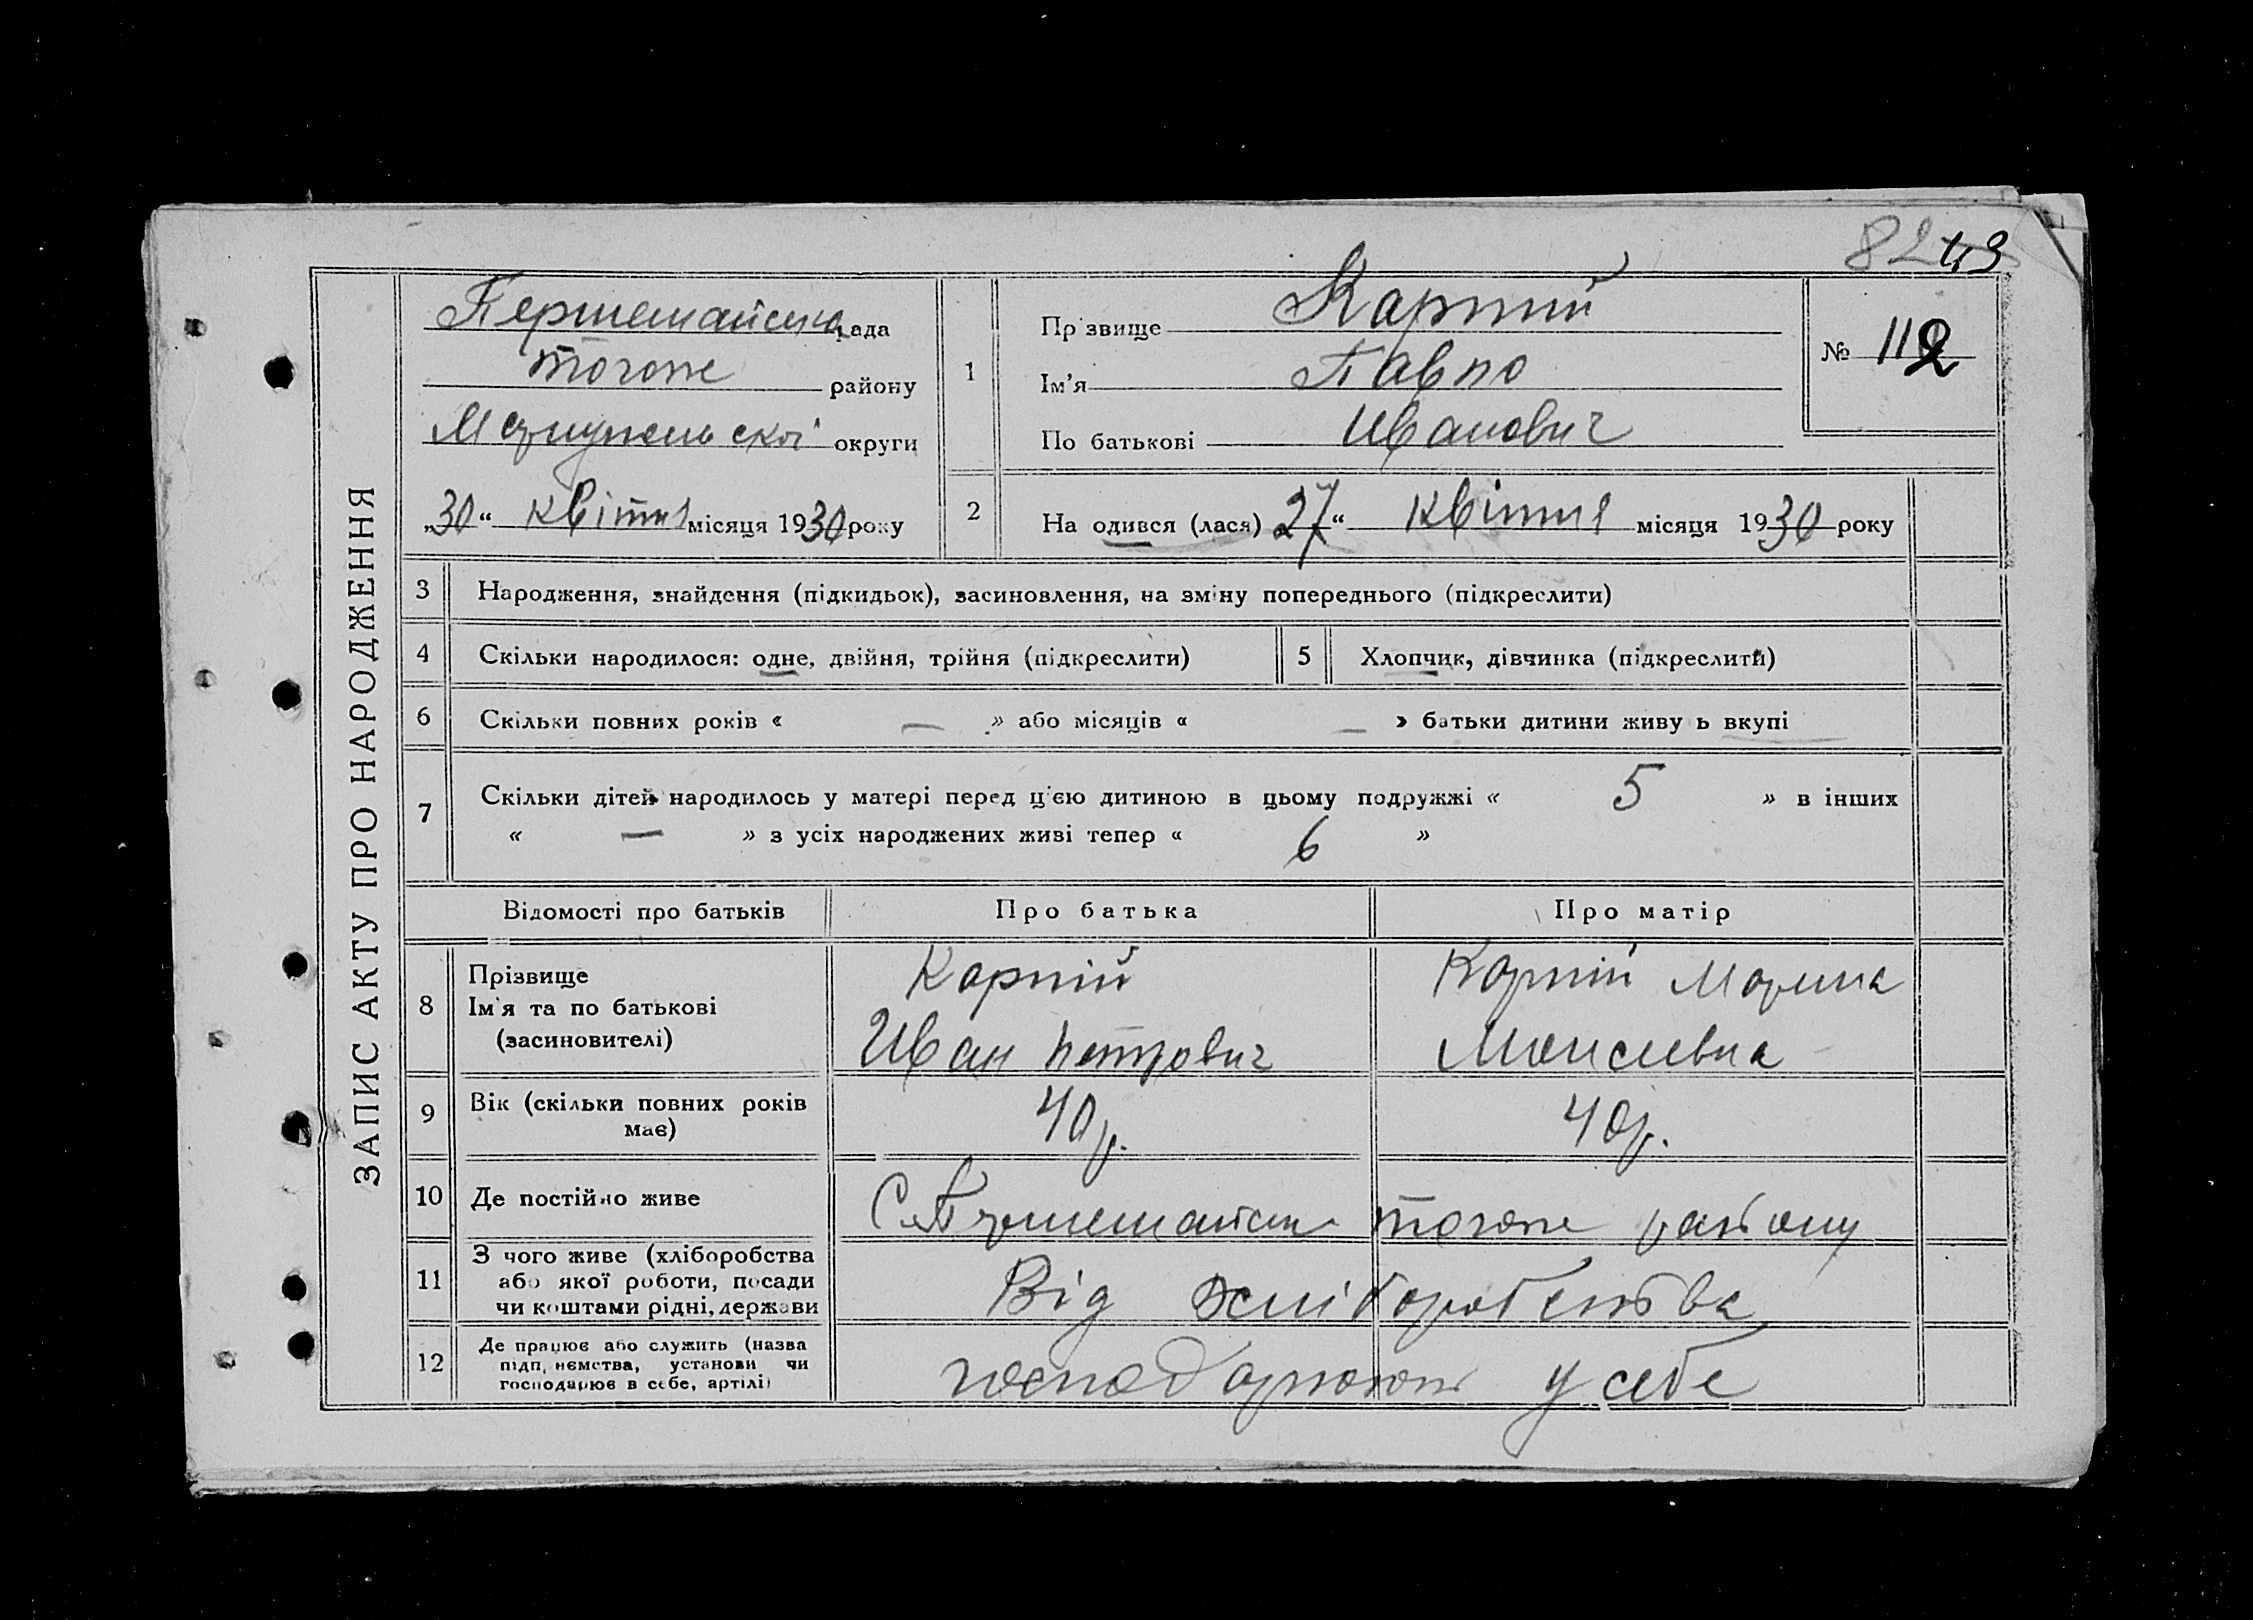 82 43
ЗАПИС АКТУ ПРО НАРОДЖЕННЯ
Першемайська рада
тогоже району
Маріупельскої округи
„30“ квітня місяця 1930 року
1
Прізвище Карпий
Ім'я Павло
По батькові Иванович
№ 112
2
На одився (лася) 27“ Квітня місяця 1930 року
3 Народження, знайдення (підкидьок), засиновлення, на зміну попереднього (підкреслити)
4 Скільки народилося: одне, двійня, трійня (підкреслити) 5 Хлопчик, дівчинка (підкреслити)
6 Скільки повних років « — » або місяців « — » батьки дитини живу ь вкупі
7 Скільки дітей народилось у матері перед цією дитиною в цьому подружжі « 5 » в інших
« — » з усіх народжених живі тепер « 6 »
Відомості про батьків Про батька Про матір
8 Прізвище
Ім'я та по батькові
(засиновителі)
Карпій
Иван Петрович
Карпій Марина
Моисиевна
9 Вік (скільки повних років
має)
40 р. 40 р.
10 Де постійно живе С. Першемайськ тогоже району
11 З чого живе (хліборобства
або якої роботи, посади
чи коштами рідні, держави
Від хліборобства
12 Де працює або служить (назва
підп, нємства, установи чи
господарює в себе, артілі)
господарюють у себе